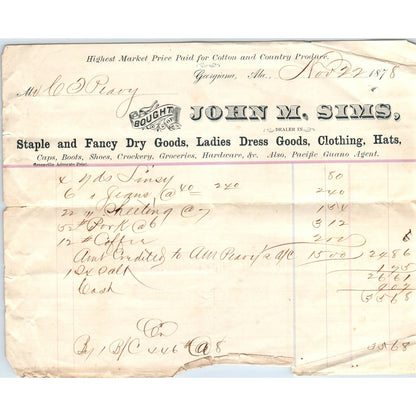 Highest Market Price Paid for Cotton and Country Produce.
Georgiana, Ala., Nov 22 1878
Mr C T Peavy
BOUGHT OF
JOHN M. SIMS,
DEALER IN
Staple and Fancy Dry Goods, Ladies Dress Goods, Clothing, Hats,
Caps, Boots, Shoes, Crockery, Groceries, Hardware, &c. Also, Pacific Guano Agent.
4 yds Linsy 80
6 " Jeans @ 40 240 240
22 " Sheeting @ 7 154
52 # Pork @ 6 312
12 # Coffee 200
Amt Credited to Peavy's a/c 1500 2486
1 Sx Salt 175
2661
Cash 907
3568
Cr
By 1 B/C 446 # @ 8 3568